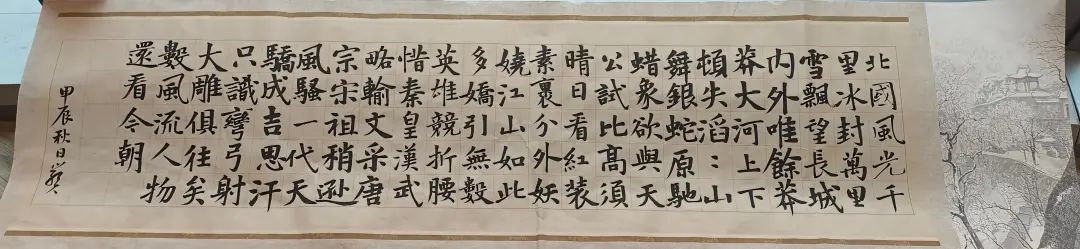 北國風光千
里冰封萬里
雪飄望長城
内外唯餘莽
莽大河上下
頓失滔：山
舞銀蛇原馳
蜡象欲與天
公試比高須
晴日看紅装
素裹分外妖
嬈江山如此
多嬌引無數
英雄競折腰
惜秦皇漢武
略輸文采唐
宗宋祖稍遜
風騷一代天
驕成吉思汗
只識彎弓射
大雕俱往矣
數風流人物
還看今朝
甲辰秋日